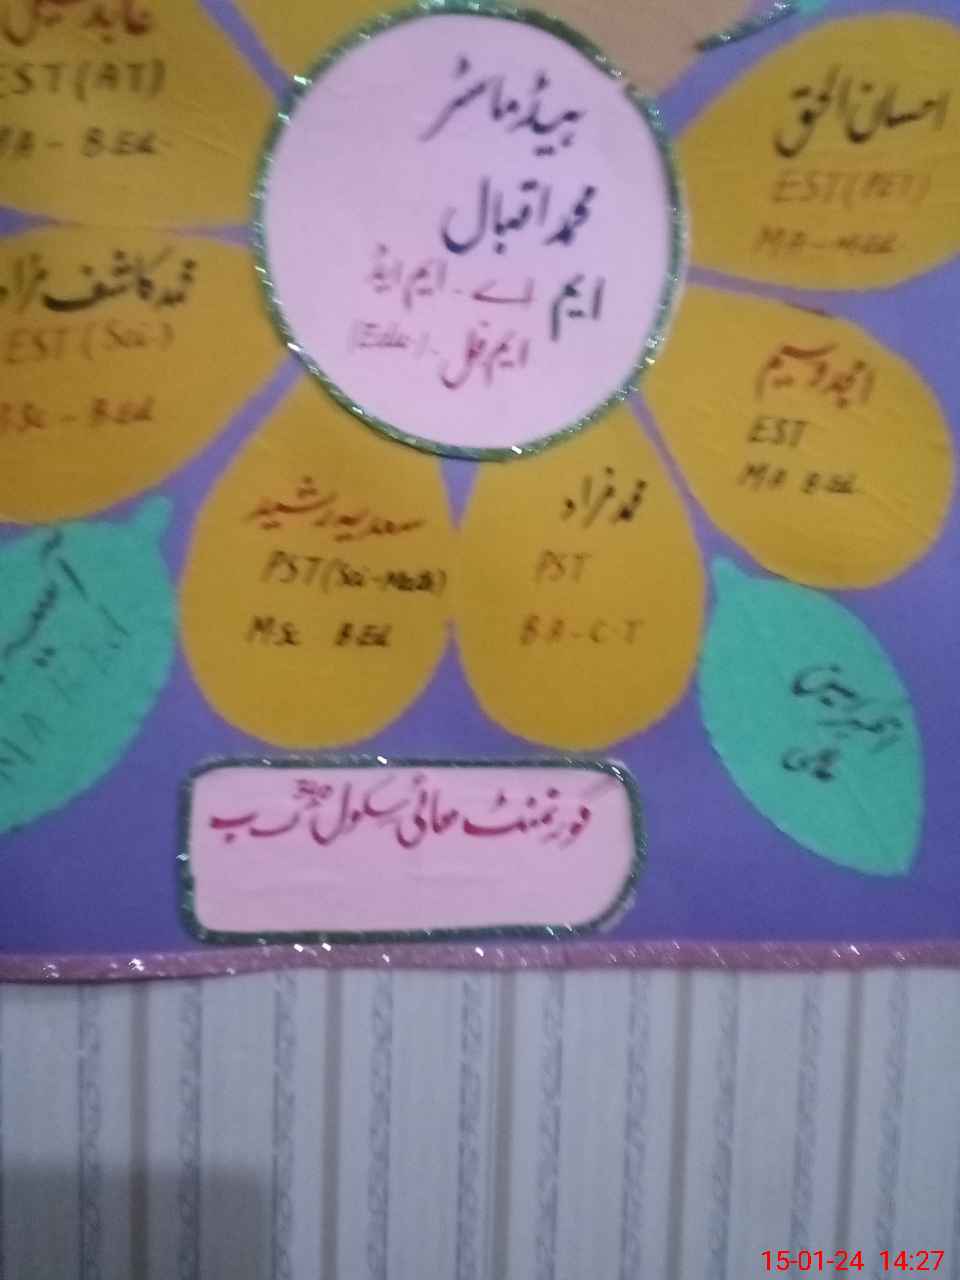 EST (AT)
B.Ed.
ہیڈ ماسٹر
محمد اقبال
ایم اے - ایم ایڈ
ایم فل - (Edu)
احسان الحق
EST (PET)
MA - M.Ed
محمد کاشف
EST (Sci)
BSc - B.Ed
امجد وسیم
EST
MA B.Ed
سعدیہ رشید
PST (Sci-Math)
MSc B.Ed
محمد
PST
B.A - C.T
گورنمنٹ ہائی سکول
15-01-24 14:27